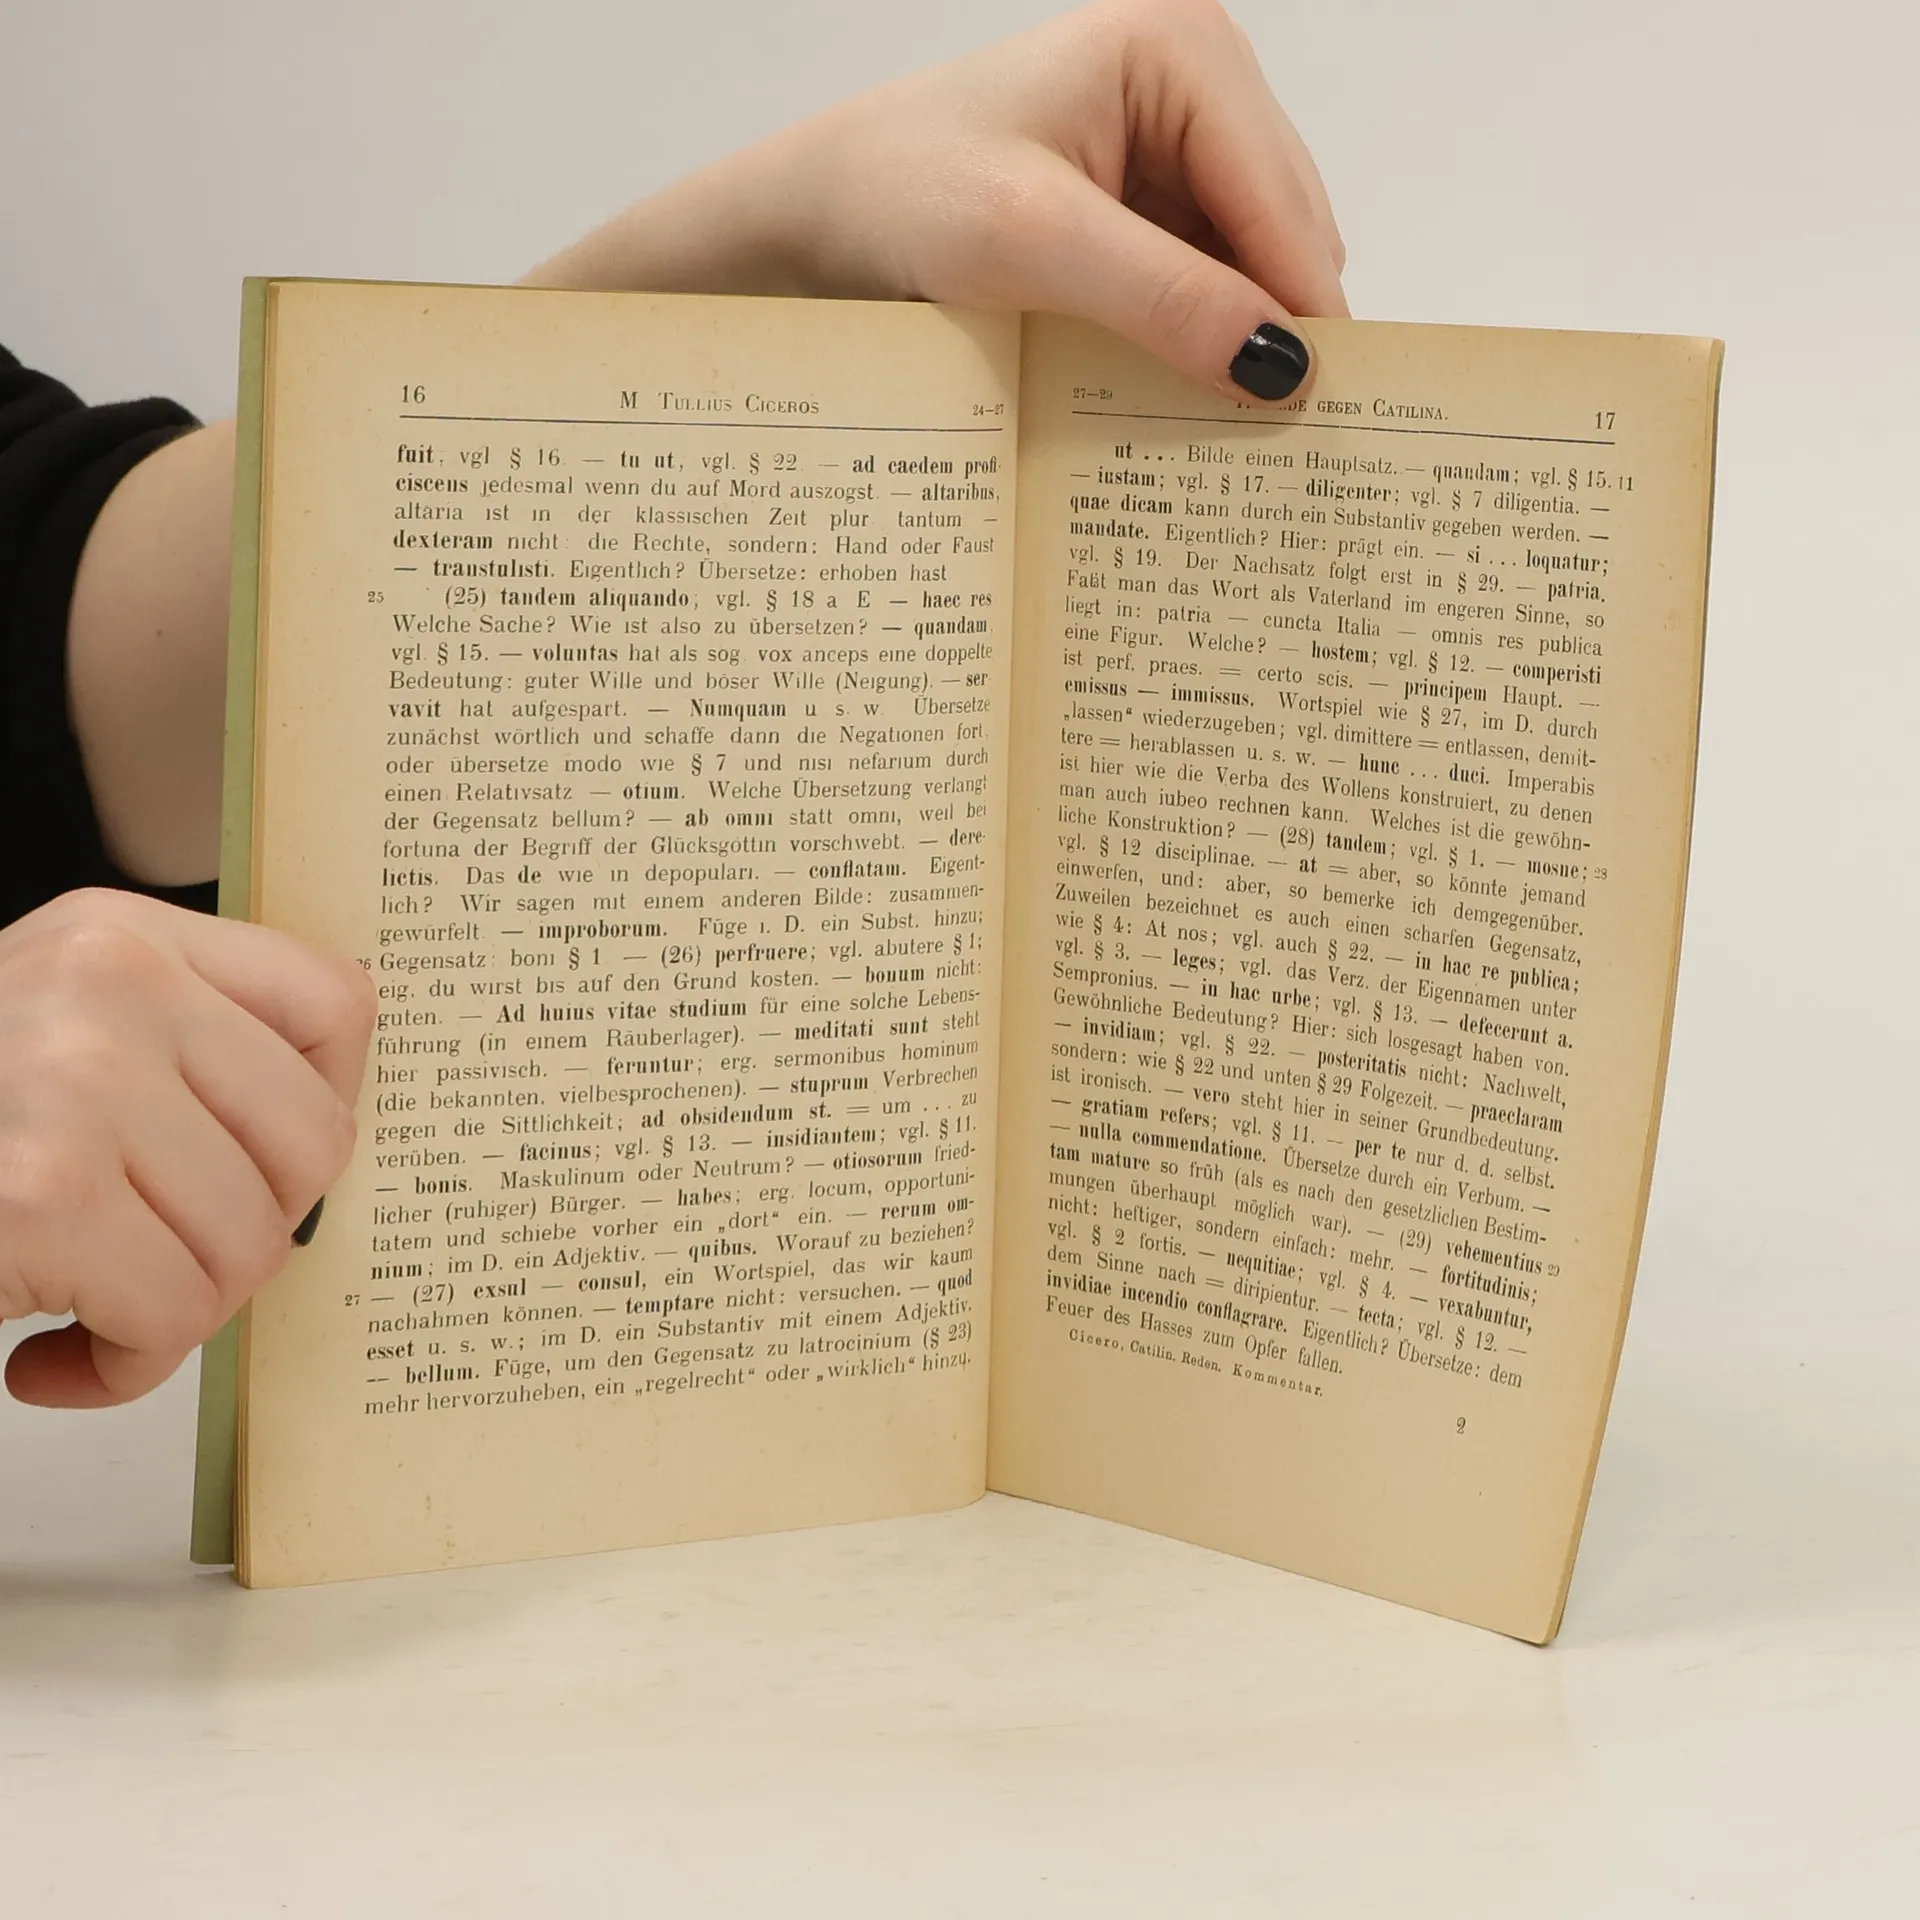 16 M TULLIUS CICEROS 24—27
fuit; vgl § 16. — tu ut, vgl. § 22 — ad caedem profi-
ciscens jedesmal wenn du auf Mord auszogst. — altaribus,
altaria ist in der klassischen Zeit plur tantum —
dexteram nicht: die Rechte, sondern: Hand oder Faust
— transtulisti. Eigentlich? Übersetze: erhoben hast
25 (25) tandem aliquando; vgl. § 18 a E — haec res
Welche Sache? Wie ist also zu übersetzen? — quandam,
vgl. § 15. — voluntas hat als sog. vox anceps eine doppelte
Bedeutung: guter Wille und böser Wille (Neigung). — ser-
vavit hat aufgespart. — Numquam u s. w. Übersetze
zunächst wörtlich und schaffe dann die Negationen fort,
oder übersetze modo wie § 7 und nisi nefarium durch
einen Relativsatz — otium. Welche Übersetzung verlangt
der Gegensatz bellum? — ab omni statt omni, weil bei
fortuna der Begriff der Glücksgöttin vorschwebt. — dere-
lictis. Das de wie in depopulari. — conflatam. Eigent-
lich? Wir sagen mit einem anderen Bilde: zusammen-
gewürfelt — improborum. Füge i. D. ein Subst. hinzu;
26 Gegensatz: boni § 1 — (26) perfruere; vgl. abutere § 1;
eig. du wirst bis auf den Grund kosten. — bonum nicht:
guten. — Ad huius vitae studium für eine solche Lebens-
führung (in einem Räuberlager). — meditati sunt steht
hier passivisch. — feruntur; erg. sermonibus hominum
(die bekannten, vielbesprochenen). — stuprum Verbrechen
gegen die Sittlichkeit; ad obsidendum st. = um ... zu
verüben. — facinus; vgl. § 13. — insidiantem; vgl. § 11.
— bonis. Maskulinum oder Neutrum? — otiosorum fried-
licher (ruhiger) Bürger. — habes; erg. locum, opportuni-
tatem und schiebe vorher ein „dort“ ein. — rerum om-
nium; im D. ein Adjektiv. — quibus. Worauf zu beziehen?
27 — (27) exsul — consul, ein Wortspiel, das wir kaum
nachahmen können. — temptare nicht: versuchen. — quod
esset u. s. w.; im D. ein Substantiv mit einem Adjektiv.
— bellum. Füge, um den Gegensatz zu latrocinium (§ 23)
mehr hervorzuheben, ein „regelrecht“ oder „wirklich“ hinzu.
27—29 DE GEGEN CATILINA. 17
ut ... Bilde einen Hauptsatz. — quandam; vgl. § 15. 11
— iustam; vgl. § 17. — diligenter; vgl. § 7 diligentia. —
quae dicam kann durch ein Substantiv gegeben werden. —
mandate. Eigentlich? Hier: prägt ein. — si ... loquatur;
vgl. § 19. Der Nachsatz folgt erst in § 29. — patria.
Faßt man das Wort als Vaterland im engeren Sinne, so
liegt in: patria — cuncta Italia — omnis res publica
eine Figur. Welche? — hostem; vgl. § 12. — comperisti
ist perf. praes. = certo scis. — principem Haupt. —
emissus — immissus. Wortspiel wie § 27, im D. durch
„lassen“ wiederzugeben; vgl. dimittere = entlassen, demit-
tere = herablassen u. s. w. — hunc ... duci. Imperabis
ist hier wie die Verba des Wollens konstruiert, zu denen
man auch iubeo rechnen kann. Welches ist die gewöhn-
liche Konstruktion? — (28) tandem; vgl. § 1. — mosne; 28
vgl. § 12 disciplinae. — at = aber, so könnte jemand
einwerfen, und: aber, so bemerke ich demgegenüber.
Zuweilen bezeichnet es auch einen scharfen Gegensatz,
wie § 4: At nos; vgl. auch § 22. — in hac re publica;
vgl. § 3. — leges; vgl. das Verz. der Eigennamen unter
Sempronius. — in hac urbe; vgl. § 13. — defecerunt a.
Gewöhnliche Bedeutung? Hier: sich losgesagt haben von.
— invidiam; vgl. § 22. — posteritatis nicht: Nachwelt,
sondern: wie § 22 und unten § 29 Folgezeit. — praeclaram
ist ironisch. — vero steht hier in seiner Grundbedeutung.
— gratiam refers; vgl. § 11. — per te nur d. d. selbst.
— nulla commendatione. Übersetze durch ein Verbum. —
tam mature so früh (als es nach den gesetzlichen Bestim-
mungen überhaupt möglich war). — (29) vehementius 29
nicht: heftiger, sondern einfach: mehr. — fortitudinis;
vgl. § 2 fortis. — nequitiae; vgl. § 4. — vexabuntur,
dem Sinne nach = diripientur. — tecta; vgl. § 12. —
invidiae incendio conflagrare. Eigentlich? Übersetze: dem
Feuer des Hasses zum Opfer fallen.
Cicero, Catilin. Reden. Kommentar.
2